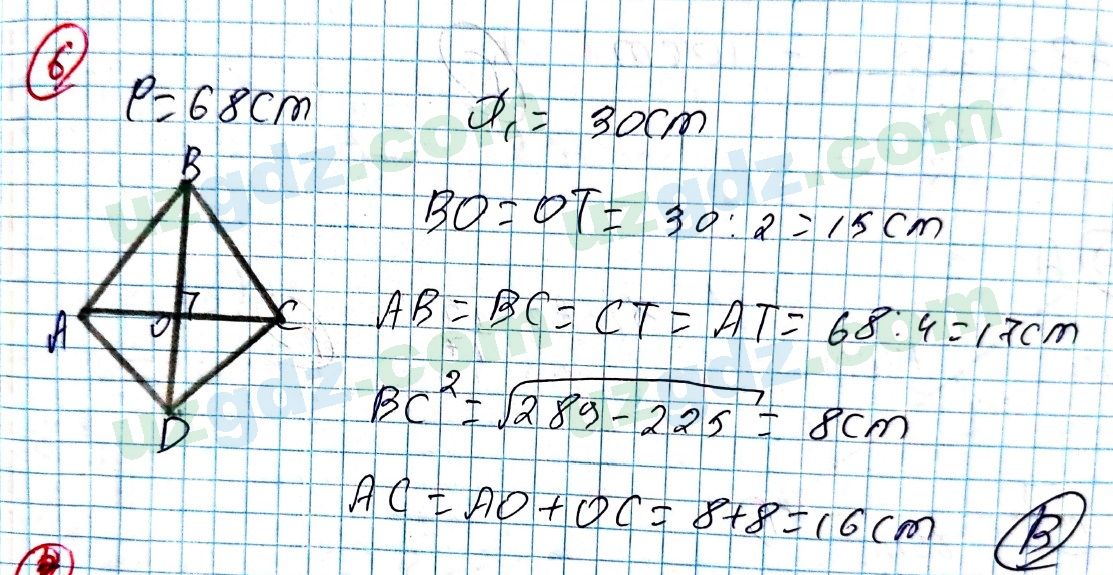 6
P=68cm
d₁= 30cm
BO=OT= 30:2=15cm
AB=BC=CT=AT=68:4=17cm
BC²=√289-225=8cm
AC=AO+OC=8+8=16cm
B
B
A
O
C
D
uzgdz.com
uzgdz.com
uzgdz.com
uzgdz.com